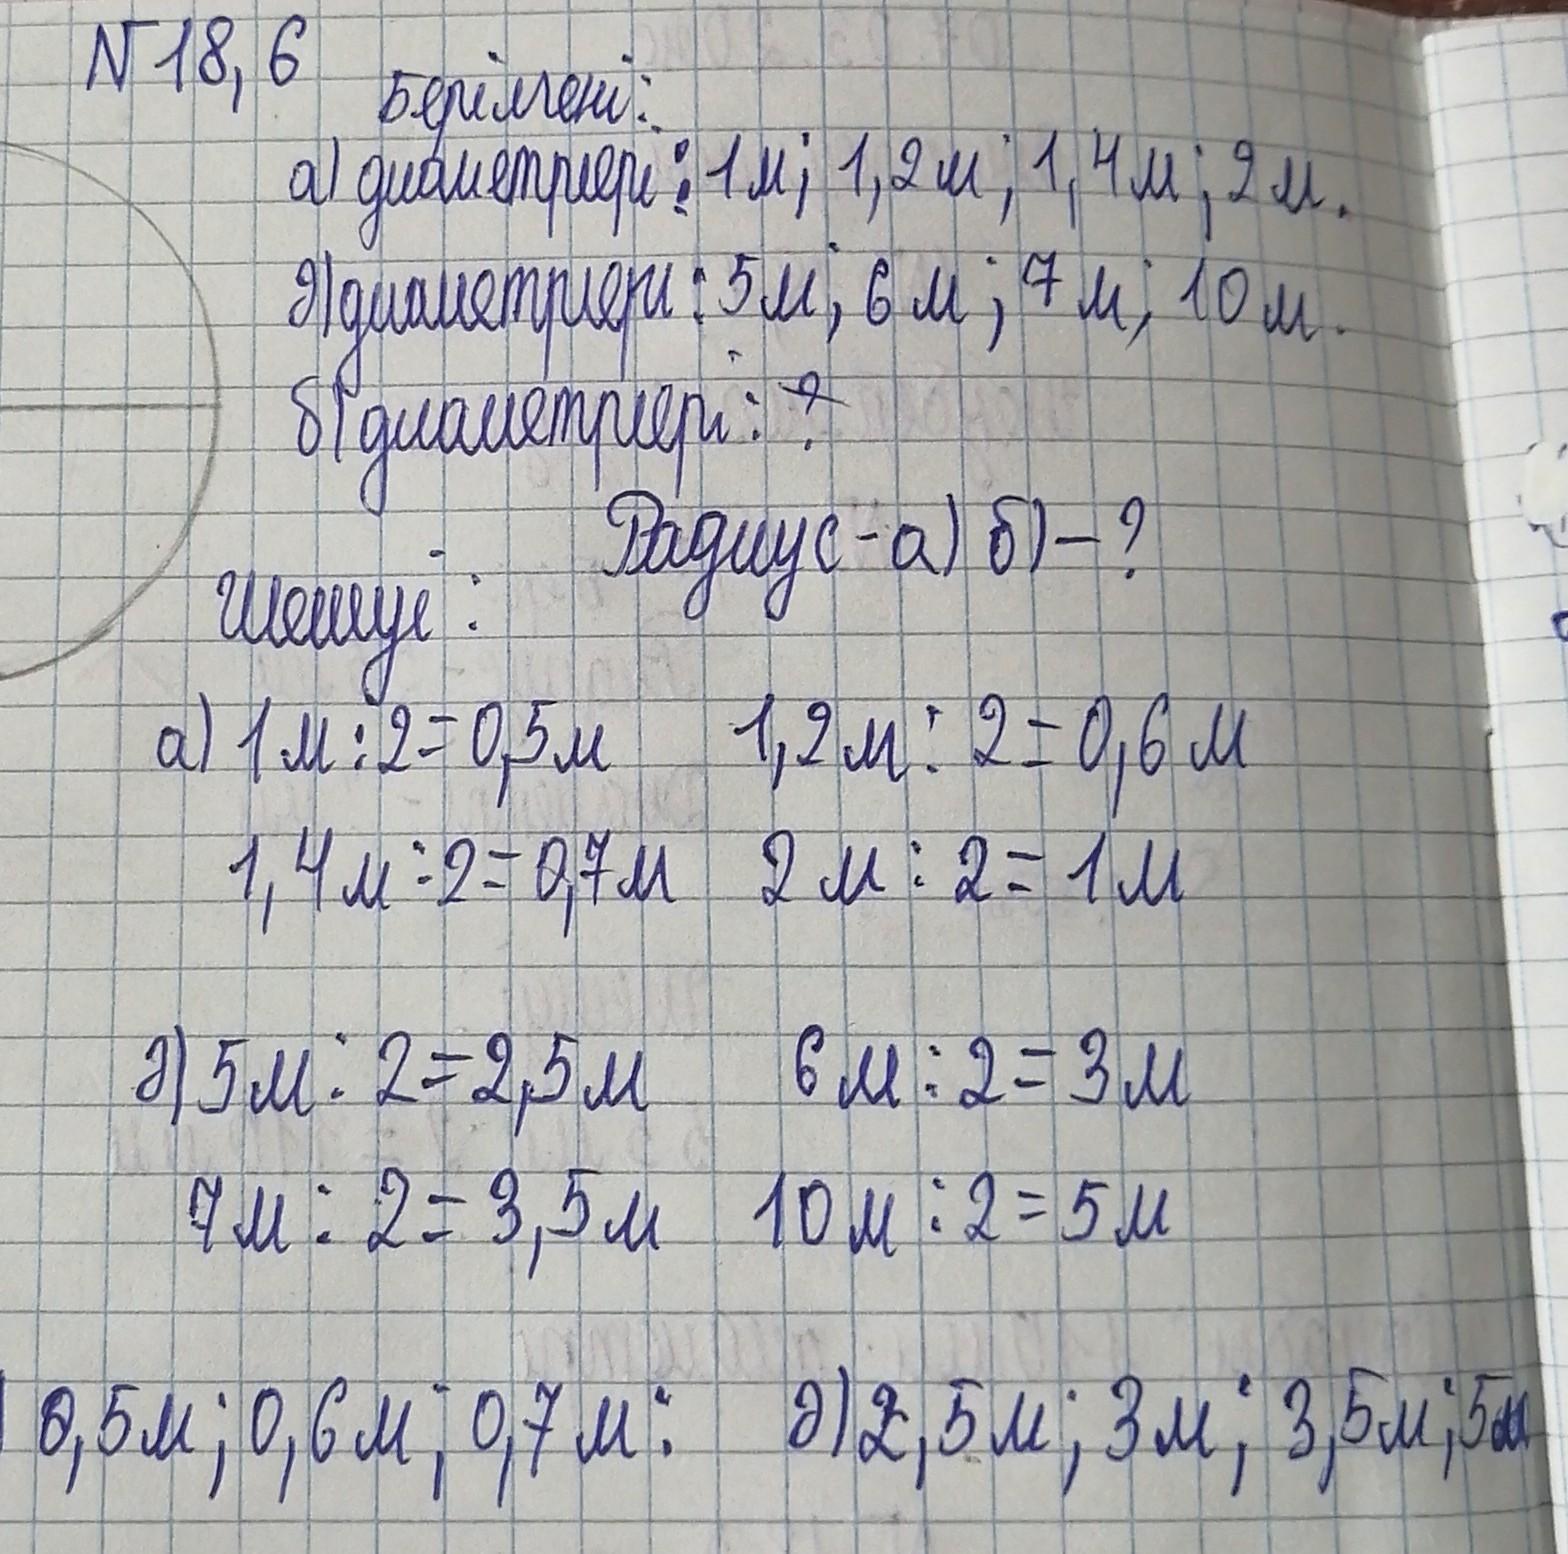 N 18,6
Берілгені:
а) диаметрлері: 1м; 1,2м; 1,4м; 2м.
ә) диаметрлері: 5м; 6м; 7м; 10м.
б) диаметрлері: ?
Радиус - а) б) - ?
Шешуі:
а) 1м:2=0,5м 1,2м:2=0,6м
1,4м:2=0,7м 2м:2=1м
ә) 5м:2=2,5м 6м:2=3м
7м:2=3,5м 10м:2=5м
) 0,5м; 0,6м; 0,7м; ә) 2,5м; 3м; 3,5м; 5м